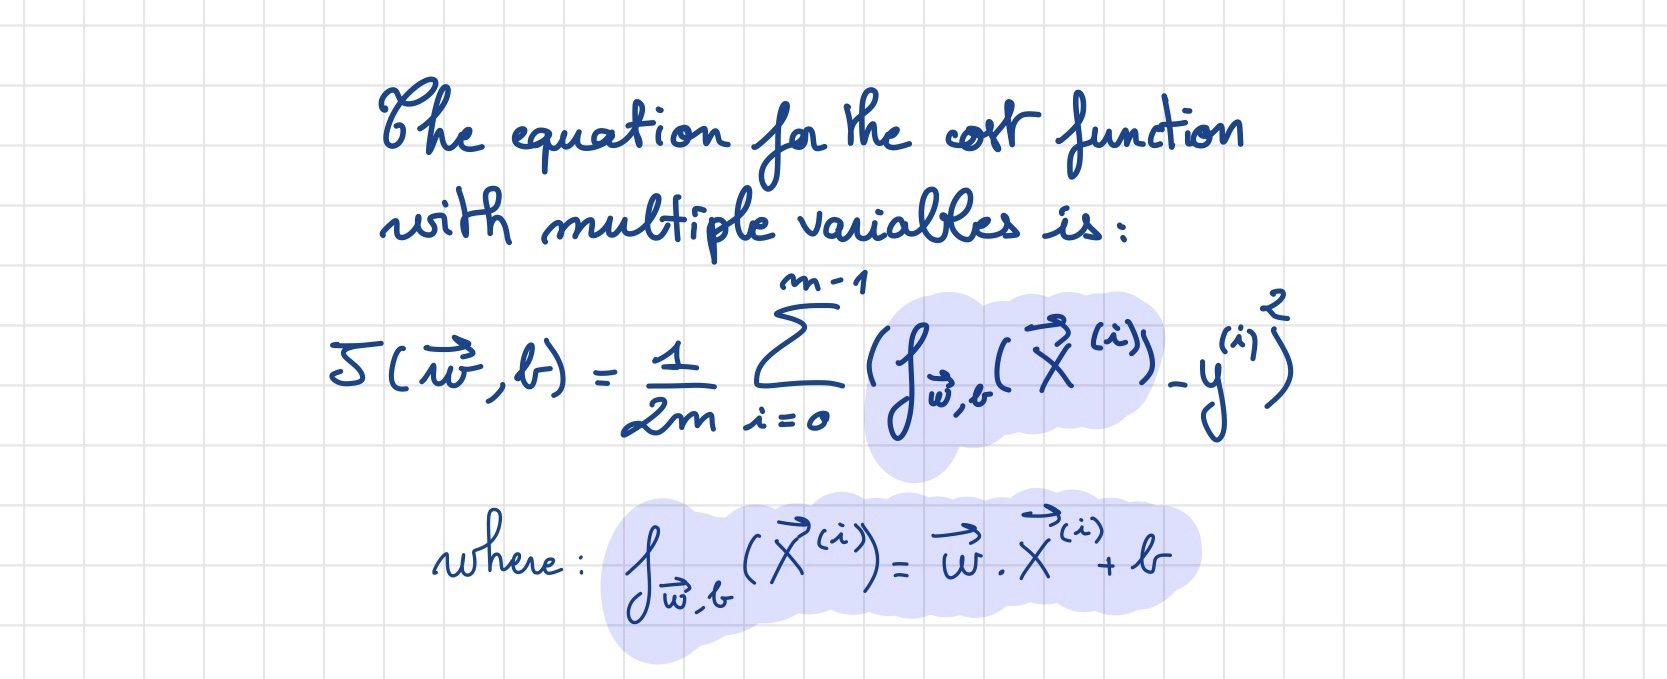 The equation for the cost function
with multiple variables is:
J(w⃗,b) = 1/2m ∑_{i=0}^{m-1} (f_{w⃗,b}(x⃗^{(i)}) - y^{(i)})^2
where: f_{w⃗,b}(x⃗^{(i)}) = w⃗ · x⃗^{(i)} + b